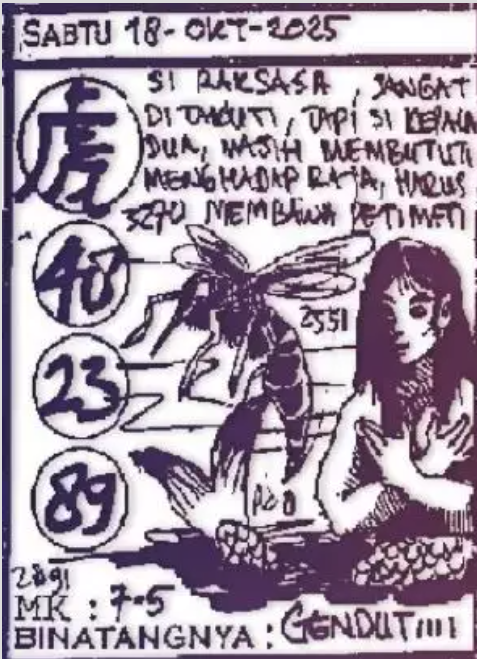 SABTU 18-OKT-2025
虎
SI RAKSASA, SANGAT
DITAKUTI, TAPI SI KEPALA
DUA, MASIH MEMBUTUTI
MENGHADAP RAJA, HARUS
3270 MEMBAWA PETI MATI
40
23
2551
89
2891
MK : 7-5
BINATANGNYA : GENDUT